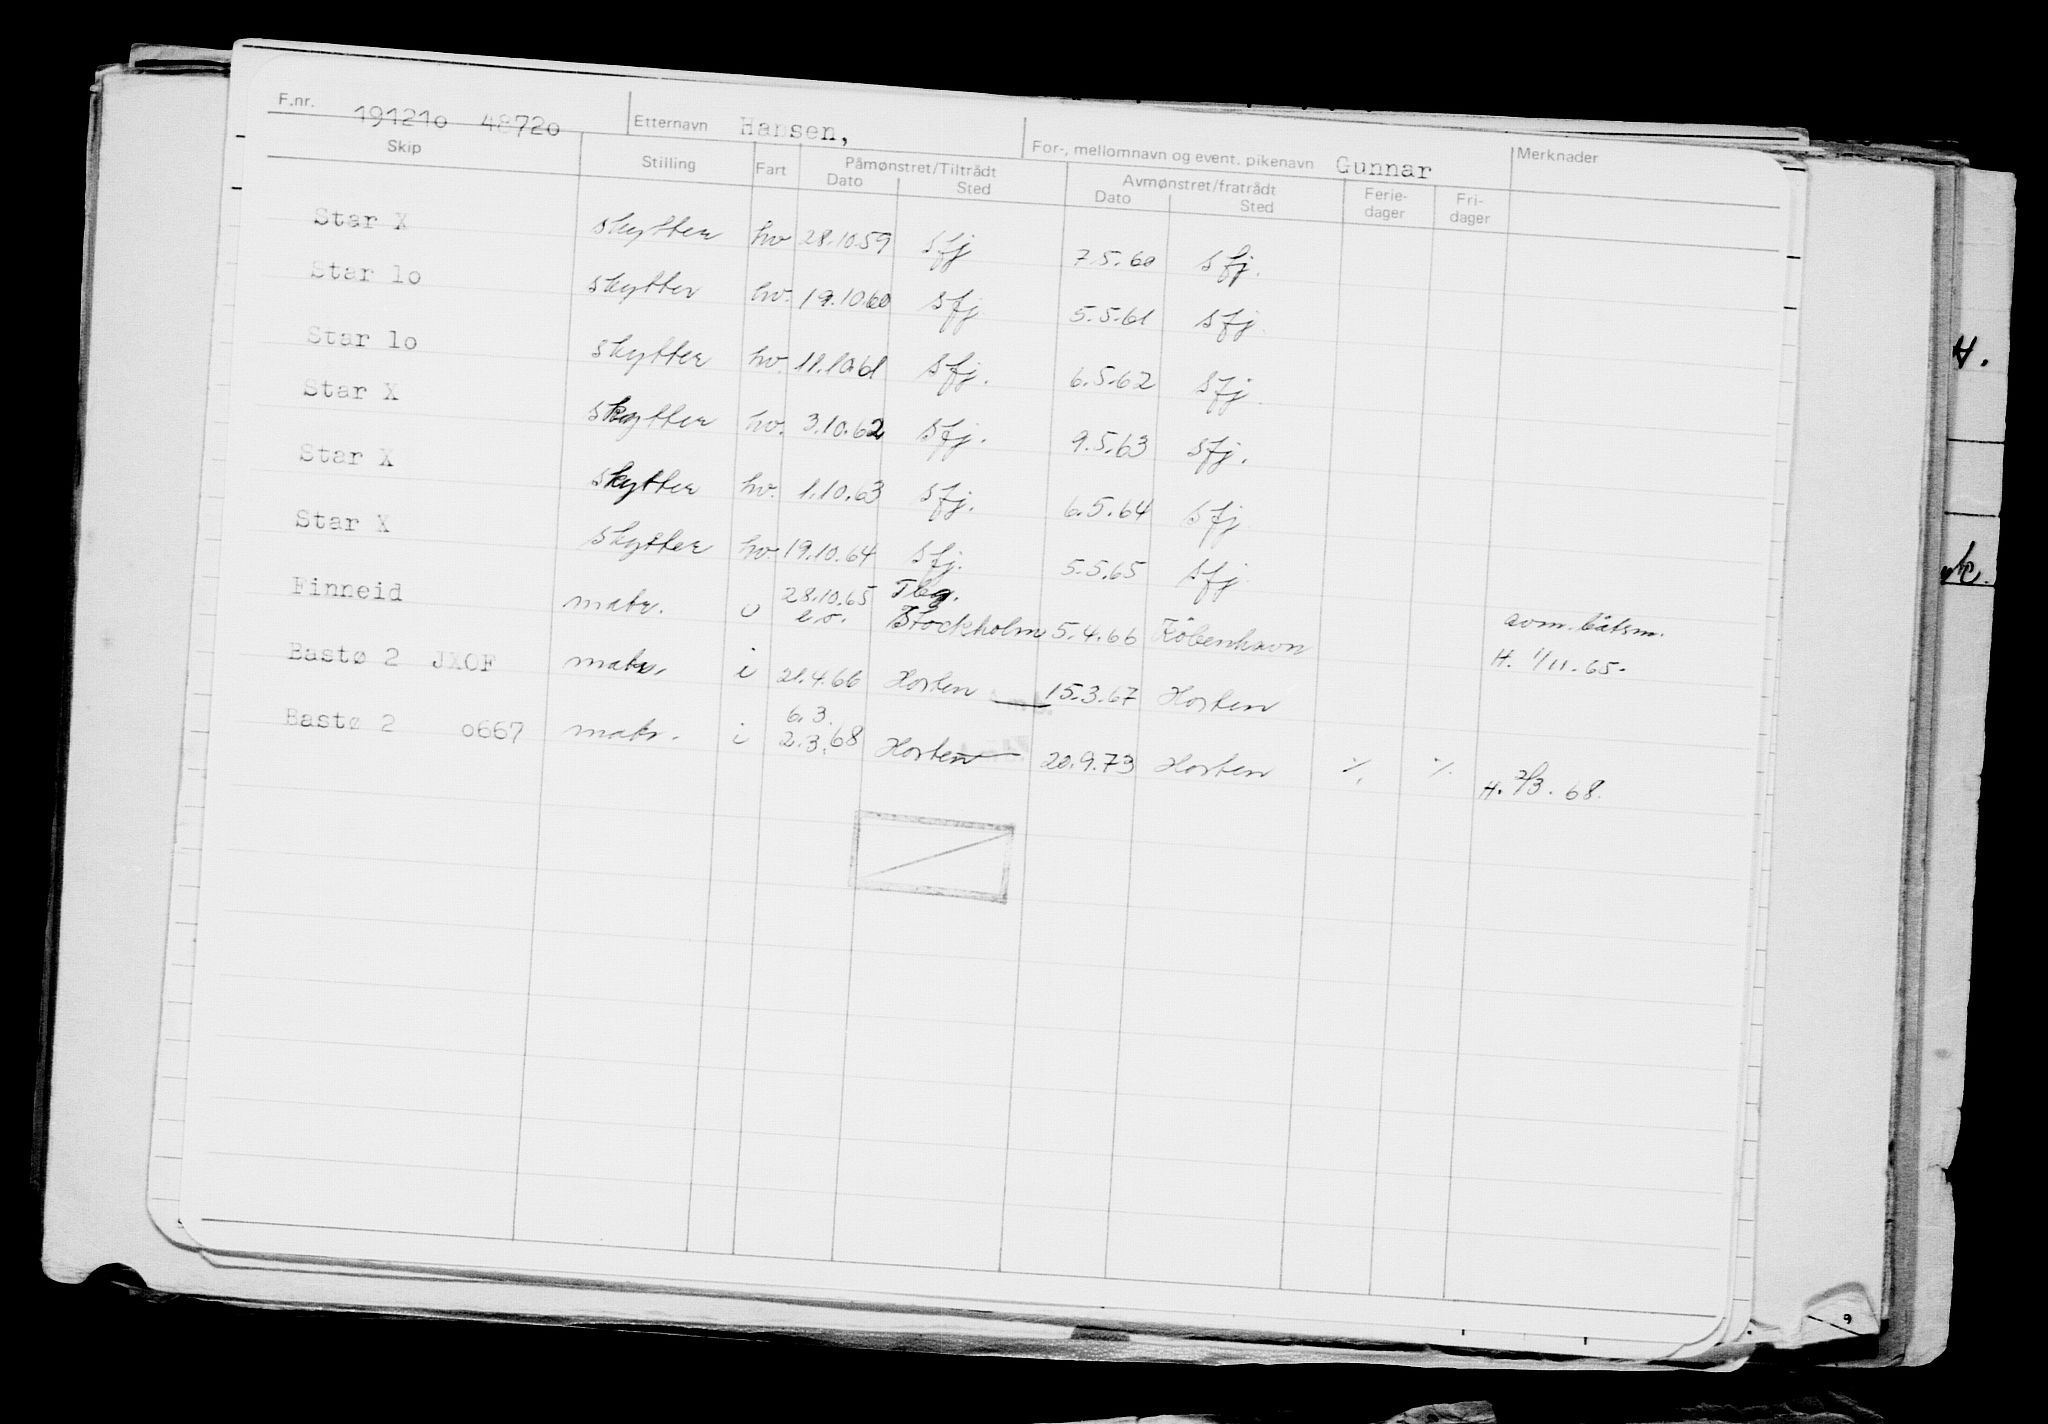 F.nr. 191210 48720 Etternavn Hansen, For-, mellomnavn og event. pikenavn Gunnar Merknader
Skip Stilling Fart Påmønstret/Tiltrådt Avmønstret/fratrådt Ferie- Fri-
Dato Sted Dato Sted dager dager
Star X skytter hv 28.10.59 Sfj 7.5.60 Sfj.
Star lo skytter hv. 19.10.60 Sfj 5.5.61 Sfj.
Star lo skytter hv. 11.10.61 Sfj. 6.5.62 Sfj.
Star X skytter hv. 3.10.62 Sfj. 9.5.63 Sfj.
Star X skytter hv. 1.10.63 Sfj. 6.5.64 Sfj
Star X skytter hv. 19.10.64 Sfj. 5.5.65 Sfj.
28.10.65 Tbg.
Finneid matr. u e.o. Stockholm 5.4.66 København avm. båtsm.
H. 1/11.65.
Bastø 2 JXOF matr. i 21.4.66 Horten 15.3.67 Horten
6.3.
Bastø 2 o667 matr. i 2.3.68 Horten 20.9.73 Horten % %
H. 2/3.68.
H.
k.
9